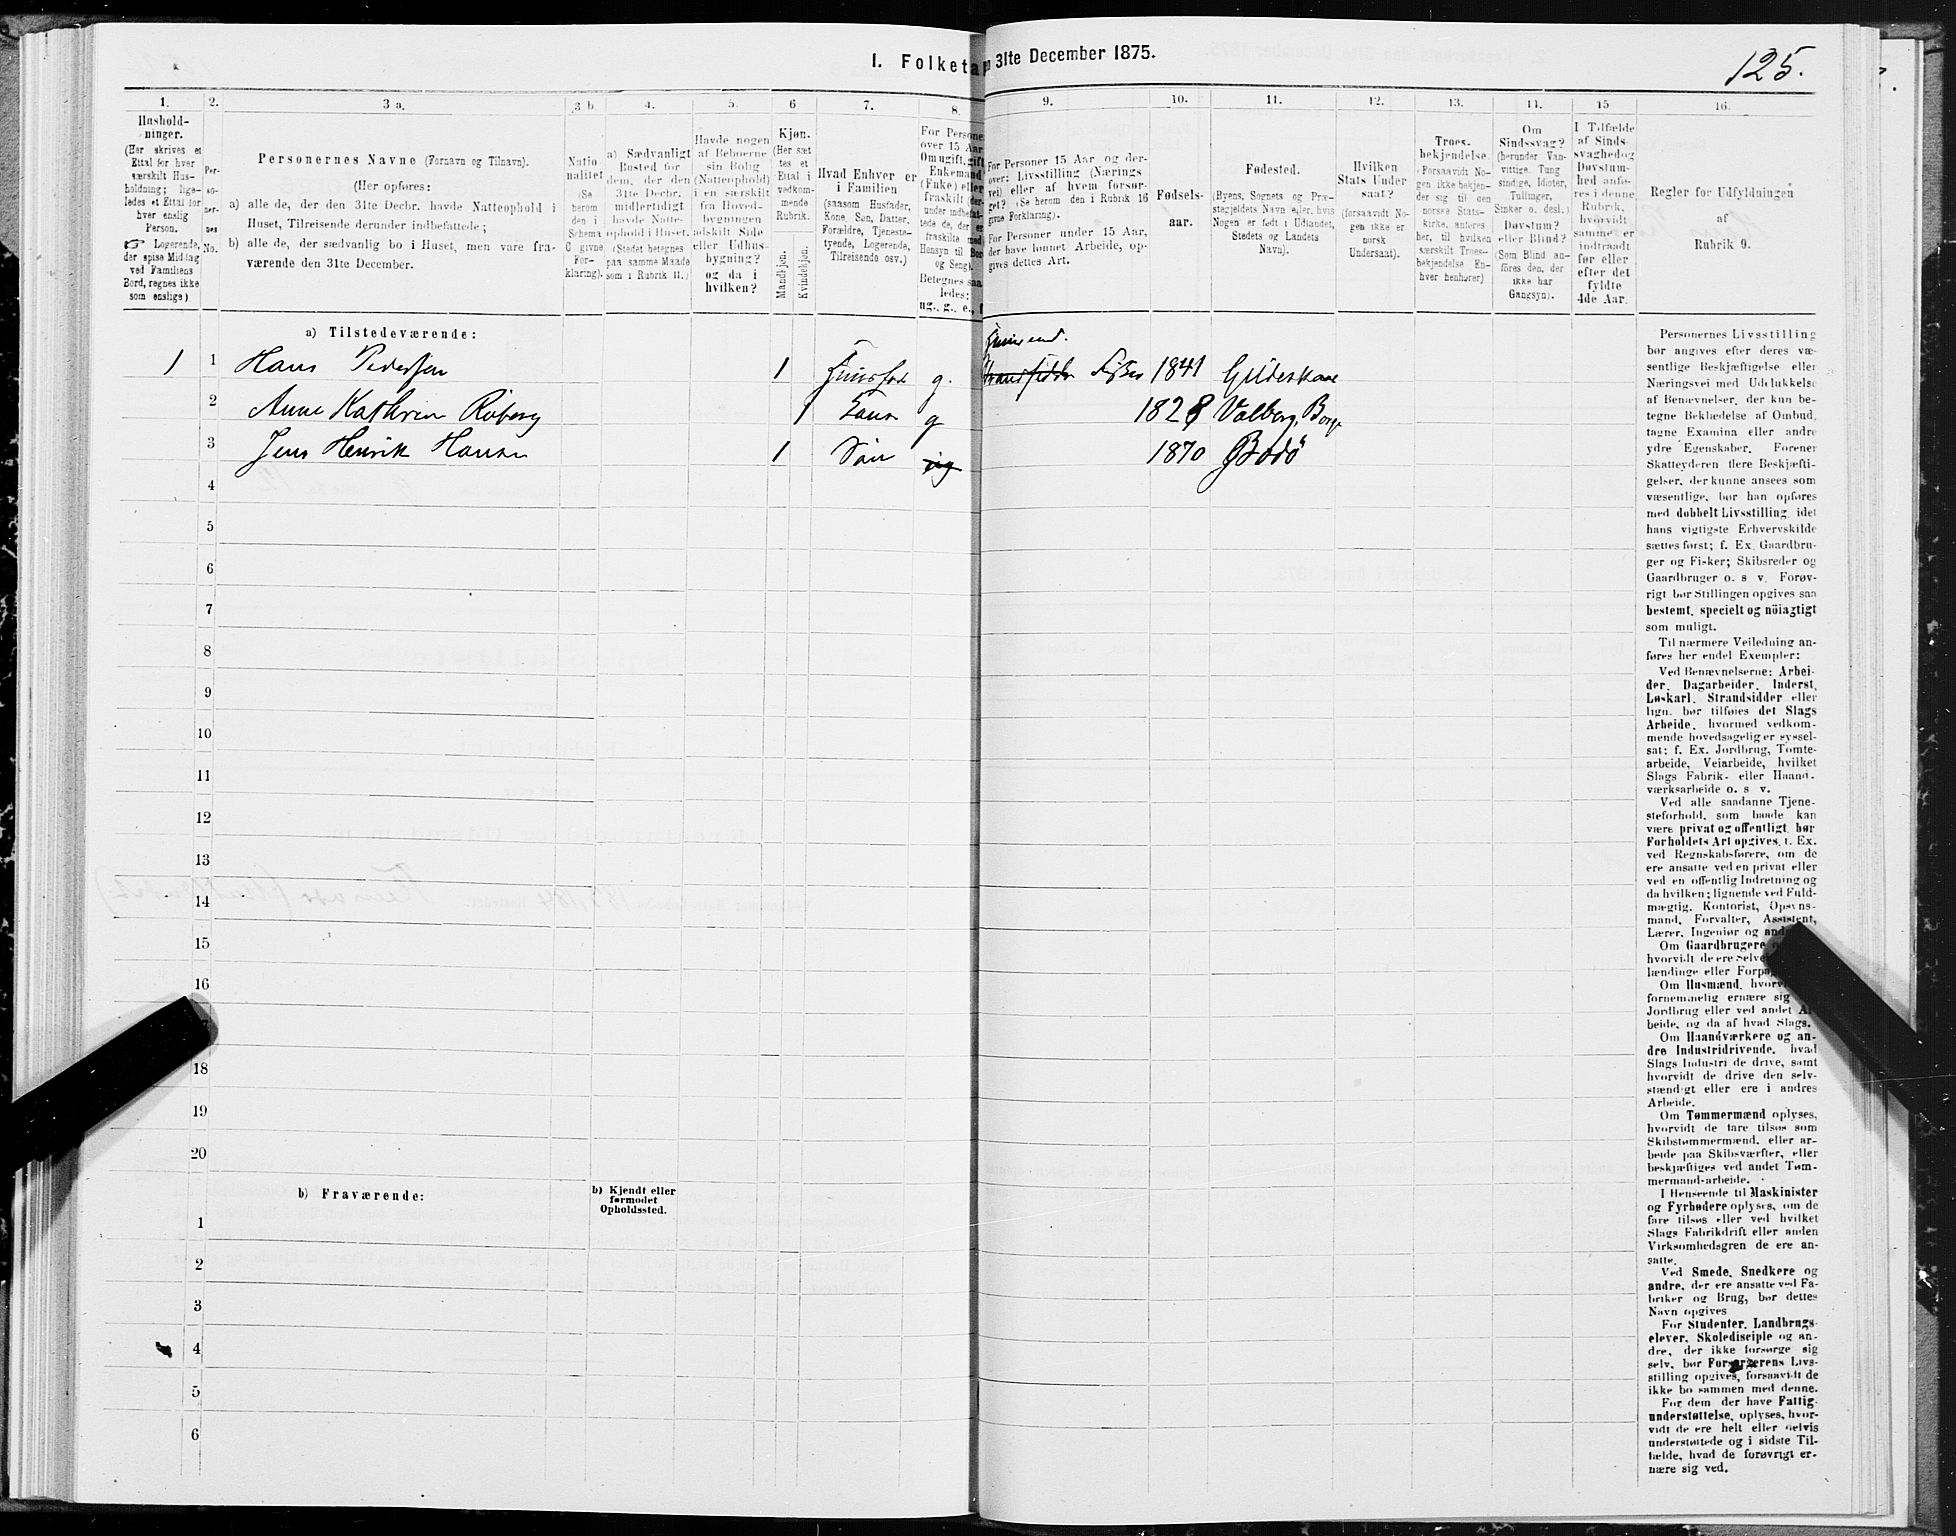 1. Folketæ
n 31te December 1875.
125.
1.
2.
3 a.
3 b
4.
5.
6
7.
8.
9.
10.
11.
12.
13.
14.
15
16.
Hushold-
ninger.
(Her skrives et
Ettal for hver
særskilt Hus-
holdning; lige-
ledes et Ettal for
hver enslig
Person.
☞ Logerende,
der spise Middag
ved Familiens
Bord, regnes ikke
som enslige)
Per-
so-
ner-
nes
No.
Personernes Navne (Fornavn og Tilnavn).
(Her opføres:
a) alle de, der den 31te Decbr. havde Natteophold i
Huset, Tilreisende derunder indbefattede;
b) alle de, der sædvanlig bo i Huset, men vare fra-
værende den 31te December.
Natio
nalitet
(Se
herom
den i
Schema
C givne
For-
klaring).
a) Sædvanligt
Bosted for
dem, der den
31te Decbr.
midlertidigt
havde Natte-
ophold i Huset.
(Stedet betegnes
paa samme Maade
som i Rubrik 11.)
Havde nogen
af Beboerne
sin Bolig
(Natteophold)
i en særskilt
fra Hoved-
bygningen
adskilt Side
eller Udhus-
bygning?
og da i
hvilken?
Kjøn.
(Her sæt
tes et
Ettal i
vedkom-
mende
Rubrik.
Mandkjøn.
Kvindekjøn.
Hvad Enhver er
i Familien
(saasom Husfader,
Kone, Søn, Datter,
Forældre, Tjeneste-
tyende, Logerende,
Tilreisende osv.)
For Persone
over 15 Aar
Om ugift, gift
Enkemand
(Enke) eller
fraskilt (der-
under indbefat-
tede de, der er
fraskilte med
Hensyn til Bor
og Seng).
Betegnes saa
ledes:
ug., g., e.,
For Personer 15 Aar og der-
over: Livsstilling (Nærings
vei) eller af hvem forsør-
get? (Se herom den i Rubrik 16
givne Forklaring).
For Personer under 15 Aar,
der have lønnet Arbeide, op-
gives dettes Art.
Fødsels-
aar.
Fødested.
(Byens, Sognets og Præ-
stegjeldets Navn eller, hvis
Nogen er født i Udlandet,
Stedets og Landets
Navn).
Hvilken
Stats Under
saat?
(forsaavidt No-
gen ikke er
norsk
Undersaat).
Troes-
bekjendelse.
(Forsaavidt No-
gen ikke bekjen-
der sig til den
norske Stats-
kirke, anføres
her, til hvilken
særskilt Troes-
bekjendelse En-
hver henhører)
Om
Sindssvag?
(herunder Van-
vittige, Tung
sindige, Idioter,
Tullinger,
Sinker o. desl.)
Døvstum?
eller Blind?
(Som Blind an-
føres den, der
ikke har
Gangsyn).
I Tilfælde
af Sinds-
svaghed og
Døvstum-
hed anfø-
res i denne
Rubrik,
hvorvidt
samme er
indtraadt
før eller
efter det
fyldte
4de Aar.
Regler for Udfyldningen
af
Rubrik 9.
a) Tilstedeværende:
1 1 Hans Pedersen 1 Husfar g. Strandsidder Fisker 1841 Gildeskaal
2 Anne Kathrin Roberg 1 Kone g 1828 Valberg, Borge
3 Jens Henrik Hansen 1 Søn ug 1870 Bodö
4
5
6
7
8
9
10
11
12
13
14
15
16
18
19
20
b) Fraværende:
b) Kjendt eller
formodet
Opholdssted.
1
2
3
4
5
6
Personernes Livsstilling
bør angives efter deres væ-
sentlige Beskjæftigelse eller
Næringsvei med Udelukkelse
af Benævnelser, der kun be-
tegne Beklædelse af Ombud,
tagne Examina eller andre
ydre Egenskaber. Forener
Skatteyderen flere Beskjæfti-
gelser, der kunne ansees som
væsentlige, bør han opføres
med dobbelt Livsstilling, idet
hans vigtigste Erhvervskilde
sættes først; f. Ex. Gaardbru-
ger og Fisker; Skibsreder og
Gaardbruger o. s v. Forøv-
rigt bør Stillingen opgives saa
bestemt, specielt og nöiagtigt
som muligt.
Til nærmere Veiledning an-
føres her endel Exempler:
Ved Benævnelserne: Arbei-
der, Dagarbeider, Inderst,
Løskarl, Strandsidder eller
lign. bør tilføies det Slags
Arbeide, hvormed vedkom-
mende hovedsagelig er syssel-
sat; f. Ex. Jordbrug, Tomte-
arbeide, Veiarbeide, hvilket
Slags Fabrik- eller Haand-
værksarbeide o. s v.
Ved alle saadanne Tjene-
steforhold, som baade kan
være privat og offentligt, bør
Forholdets Art opgives, f. Ex.
ved Regnskabsførere, om de
ere ansatte ved en privat eller
ved en offentlig Indretning og
da hvilken; lignende ved Fuld-
mægtig, Kontorist, Opsyns-
mand, Forvalter, Assistent,
Lærer, Ingeniør og
Om Gaardbrugere
hvorvidt de ere Selve
lændinge eller Forpa
Om Husmænd, hvorv
fornemmelig ernære sig
Jordbrug eller ved andet Ar
beide, og da af hvad Slags.
Om Haandværkere og an-
dre Industridrivende, hvad
Slags Industri de drive, samt
hvorvidt de drive den selv-
stændigt eller ere i andres
Arbeide.
Om Tømmermænd oplyses,
hvorvidt de fare tilsøs som
Skibstømmermænd, eller ar-
beide paa Skibsværfter, eller
beskjæftiges ved andet Tøm-
mermand-arbeide.
I Henseende til Maskinister
og Fyrbødere oplyses, om de
fare tilsøs eller ved hvilket
Slags Fabrikdrift eller anden
Virksomhedsgren de ere an-
satte.
Ved Smede, Snedkere og
andre, der ere ansatte ved Fa-
briker og Brug, bør dettes
Navn opgives
For Studenter, Landbrugs-
elever, Skoledisciple og an-
dre, der ikke forsørge sig
selv, bør Forsørgerens Livs-
stilling opgives, forsaavidt de
ikke bo sammen med denne.
For dem der have Fattig-
understøttelse, oplyses, hvor-
vidt de ere helt eller delvis
understøttede og i sidste Til-
fælde, hvad de forøvrigt er-
nære sig ved.